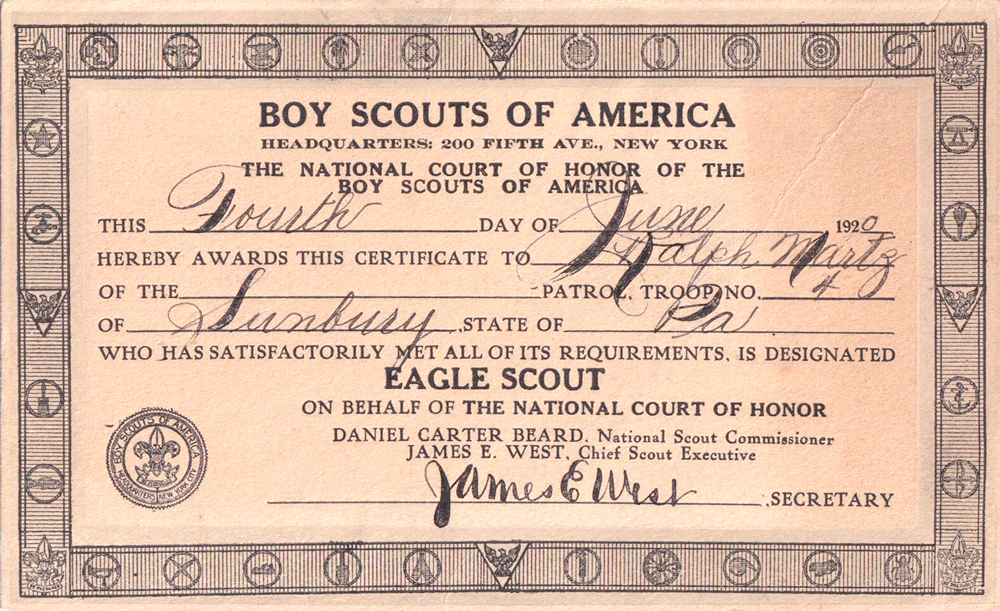 BOY SCOUTS OF AMERICA
HEADQUARTERS: 200 FIFTH AVE., NEW YORK
THE NATIONAL COURT OF HONOR OF THE
BOY SCOUTS OF AMERICA
THIS Fourth DAY OF June 1920
HEREBY AWARDS THIS CERTIFICATE TO Ralph Martz
OF THE PATROL, TROOP NO. 4
OF Sunbury, STATE OF Pa
WHO HAS SATISFACTORILY MET ALL OF ITS REQUIREMENTS, IS DESIGNATED
EAGLE SCOUT
ON BEHALF OF THE NATIONAL COURT OF HONOR
DANIEL CARTER BEARD, National Scout Commissioner
JAMES E. WEST, Chief Scout Executive
James E West, SECRETARY
BOY SCOUTS OF AMERICA
HEADQUARTERS NEW YORK CITY